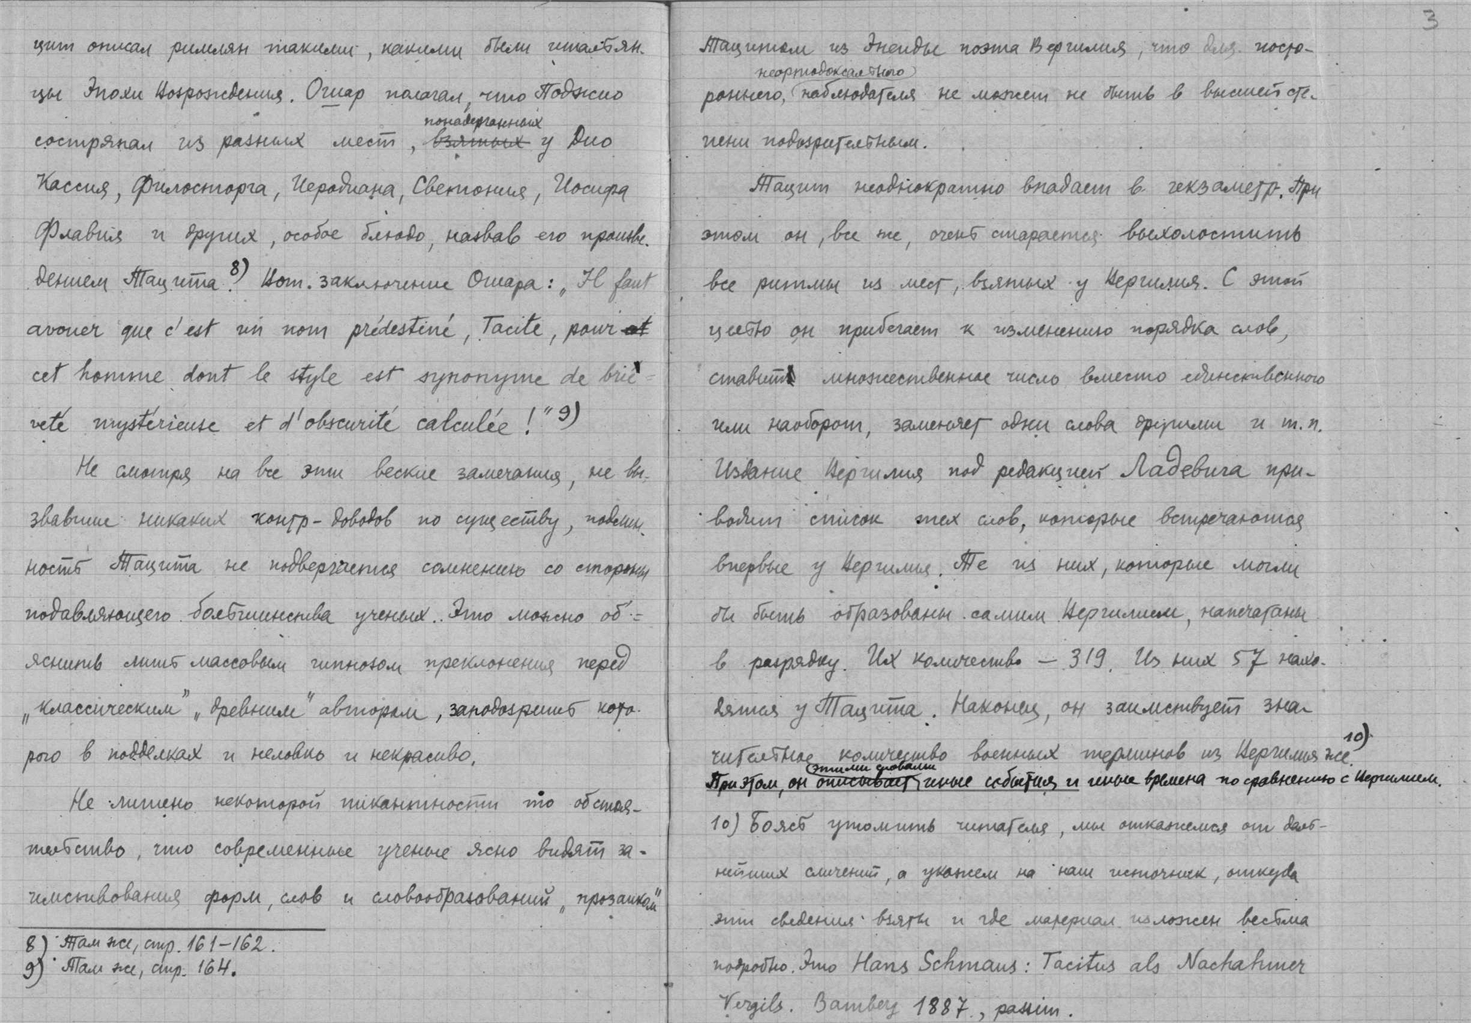 цит описал римлян такими, какими были итальян-
цы Эпохи Возрождения. Ошар полагал, что Поджио
понадерганных
состряпал из разных мест, взятых у Дио
Кассия, Филосторга, Иеродиана, Светония, Иосифа
Флавия и других, особое блюдо, назвав его произве-
дением Тацита. 8) Вот заключение Ошара: „Il faut
avouer que c'est un nom prédestiné, Tacite, pour et
cet homme dont le style est synonyme de briè-
veté mystérieuse et d'obscurité calculée!" 9)
Не смотря на все эти веские замечания, не вы-
звавшие никаких контр-доводов по существу, подлин-
ность Тацита не подвергается сомнению со стороны
подавляющего большинства ученых. Это можно об'-
яснить лишь массовым гипнозом преклонения перед
„классическим" „древним" автором, заподозрить кото-
рого в подделках и неловко и некрасиво.
Не лишено некоторой пикантности то обстоя-
тельство, что современные ученые ясно видят за-
имствования форм, слов и словообразований „прозаиком"
8) Там же, стр. 161-162.
9) Там же, стр. 164.
3
Тацитом из Энеиды поэта Вергилия, что для посто-
неортодоксального
роннего, наблюдателя не может не быть в высшей сте-
пени подозрительным.
Тацит неоднократно впадает в гекзаметр. При
этом он, все же, очень старается выхолостить
все ритмы из мест, взятых у Вергилия. С этой
целью он прибегает к изменению порядка слов,
ставит множественное число вместо единственного
или наоборот, заменяет одни слова другими и т.п.
Издание Вергилия под редакцией Ладевича при-
водит список тех слов, которые встречаются
впервые у Вергилия. Те из них, которые могли
бы быть образованы самим Вергилием, напечатаны
в разрядку. Их количество — 319. Из них 57 нахо-
дятся у Тацита. Наконец, он заимствует зна-
чительное количество военных терминов из Вергилия же. 10)
этими словами
При этом, он описывает иные события и иные времена по сравнению с Вергилием.
10) Боясь утомить читателя, мы откажемся от даль-
нейших сличений, а укажем на наш источник, откуда
эти сведения взяты и где материал изложен весьма
подробно. Это Hans Schmaus: Tacitus als Nachahmer
Vergils. Bamberg 1887, passim.